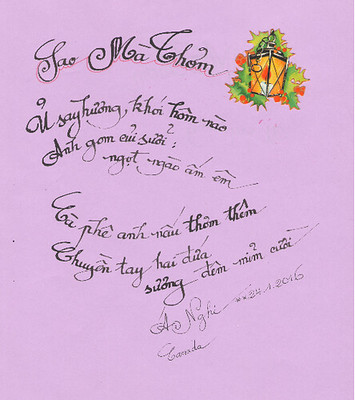 Sao Mà Thỏm
Ủ say hương, khói hôm nào
Anh gom củi sưởi;
ngọt ngào ấm êm
Cà phê anh nấu thôm thêm
Chuyền tay hai đứa
sương đêm mỉm cười
Á Nghi 24.1.2016
Canada